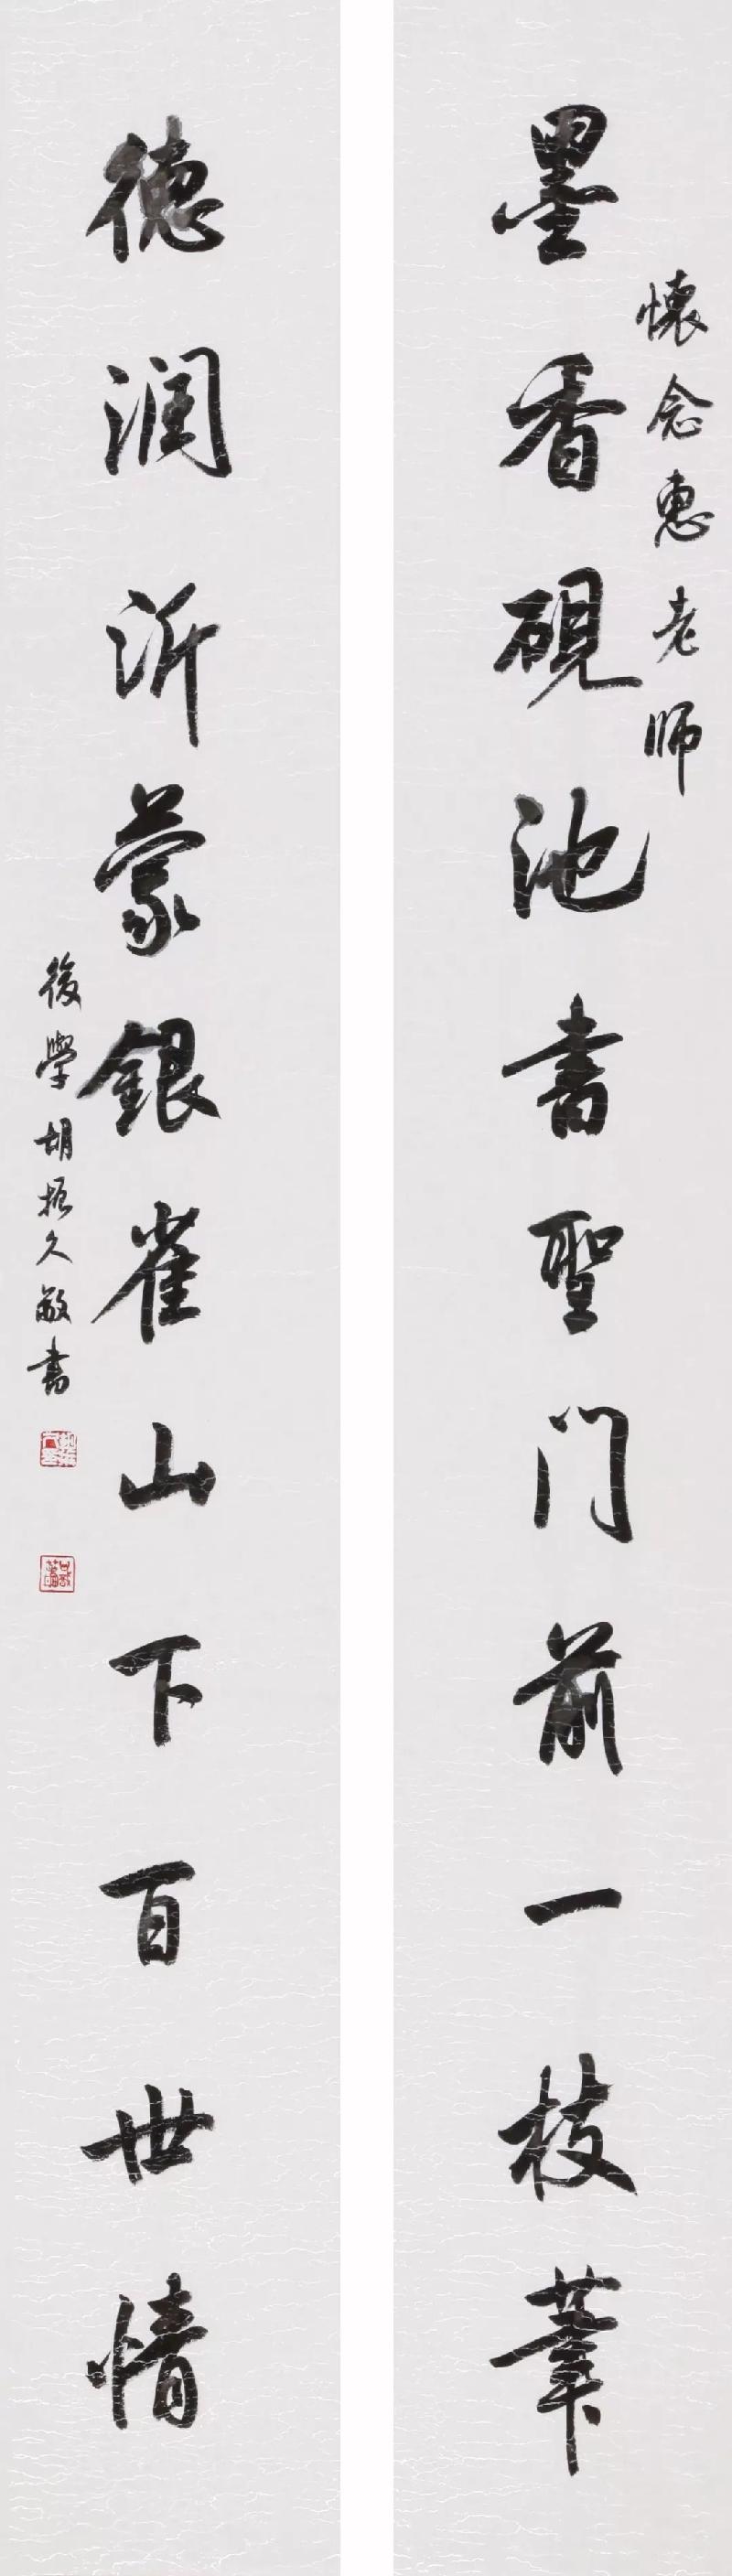 懷念惠老師
墨香硯池書聖门前一枝筆
德润沂蒙銀雀山下百世情
後學胡振久敬書